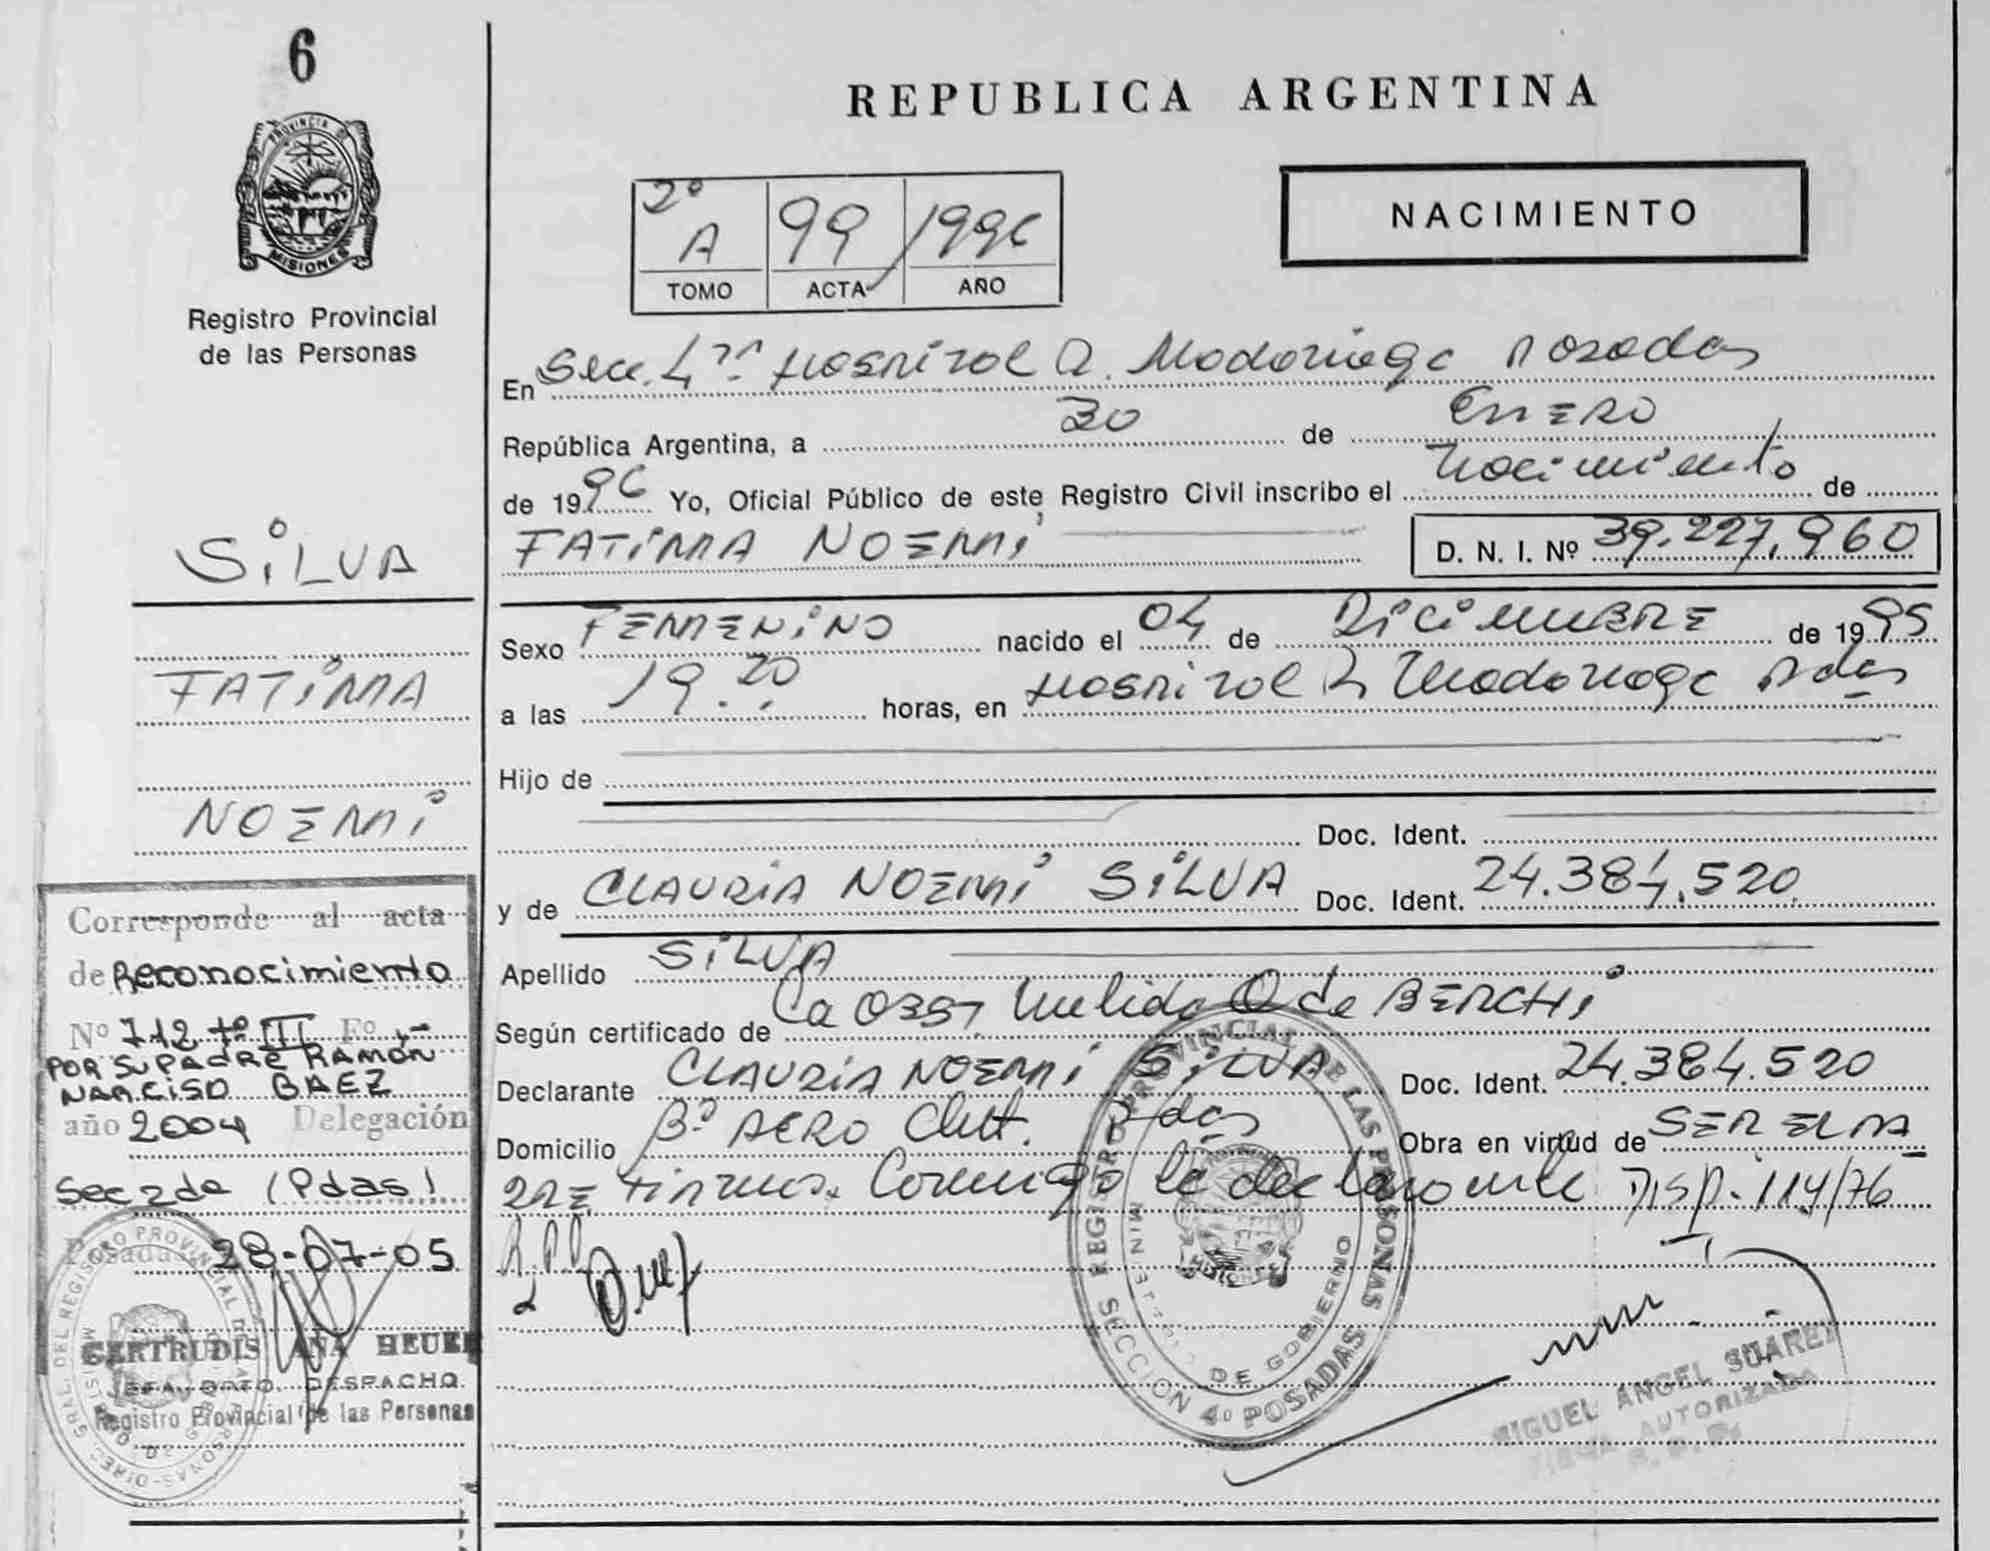 6
PROVINCIA DE
MISIONES
Registro Provincial
de las Personas
SILVA
FATIMA
NOEMI
Corresponde al acta
de Reconocimiento
Nº 712 Tº III Fº -
POR SU PADRE RAMÓN
NARCISO BAEZ
año 2004 Delegación
Sec 2da (Pdas)
Posadas 28-07-05
GERTRUDIS ANA
JEFA DPTO. DESPACHO
Registro Provincial de las Personas
REPUBLICA ARGENTINA
NACIMIENTO
2º A 99 1996
TOMO ACTA AÑO
En Secc. 4ta Hospital R. Madariaga Posadas
República Argentina, a 30 de ENERO
de 1996 Yo, Oficial Público de este Registro Civil inscribo el Nacimiento de
FATIMA NOEMI
D. N. I. Nº 39.227.960
Sexo FEMENINO nacido el 04 de DiCiEMBRE de 1995
a las 19.20 horas, en Hospital R. Madariaga Pdas
Hijo de
Doc. Ident.
y de CLAUDIA NOEMI SILVA Doc. Ident. 24.384.520
Apellido SILVA
Según certificado de La Obst. Nelida O de BERCHI
Declarante CLAUDIA NOEMI SILVA Doc. Ident. 24.384.520
Domicilio Bº AERO Club. Pdas Obra en virtud de SER ELLA
Conmigo la declarante Disp. 114/76
REGISTRO PROVINCIAL DE LAS PERSONAS
MINISTERIO DE GOBIERNO
MISIONES
SECCION 4º POSADAS
MIGUEL ANGEL SUAREZ
FIRMA AUTORIZADA